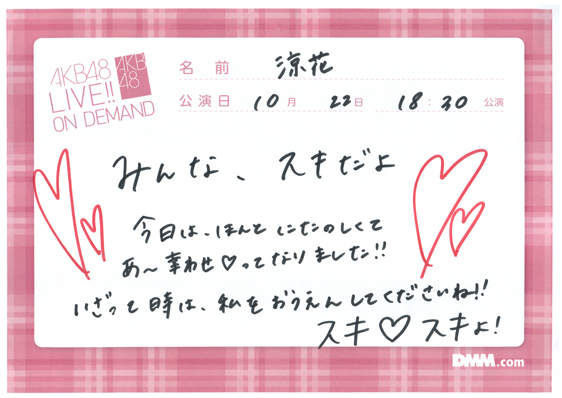 AKB48
LIVE!!
ON DEMAND
AKB
48
名前 涼花
公演日 10月 22日 18:30 公演
みんな、スキだよ
今日は、ほんとにたのしくて
あ〜幸わせ♡ってなりました!!
いざって時は、私をおうえんしてくださいね!!
スキ♡スキよ!
DMM.com